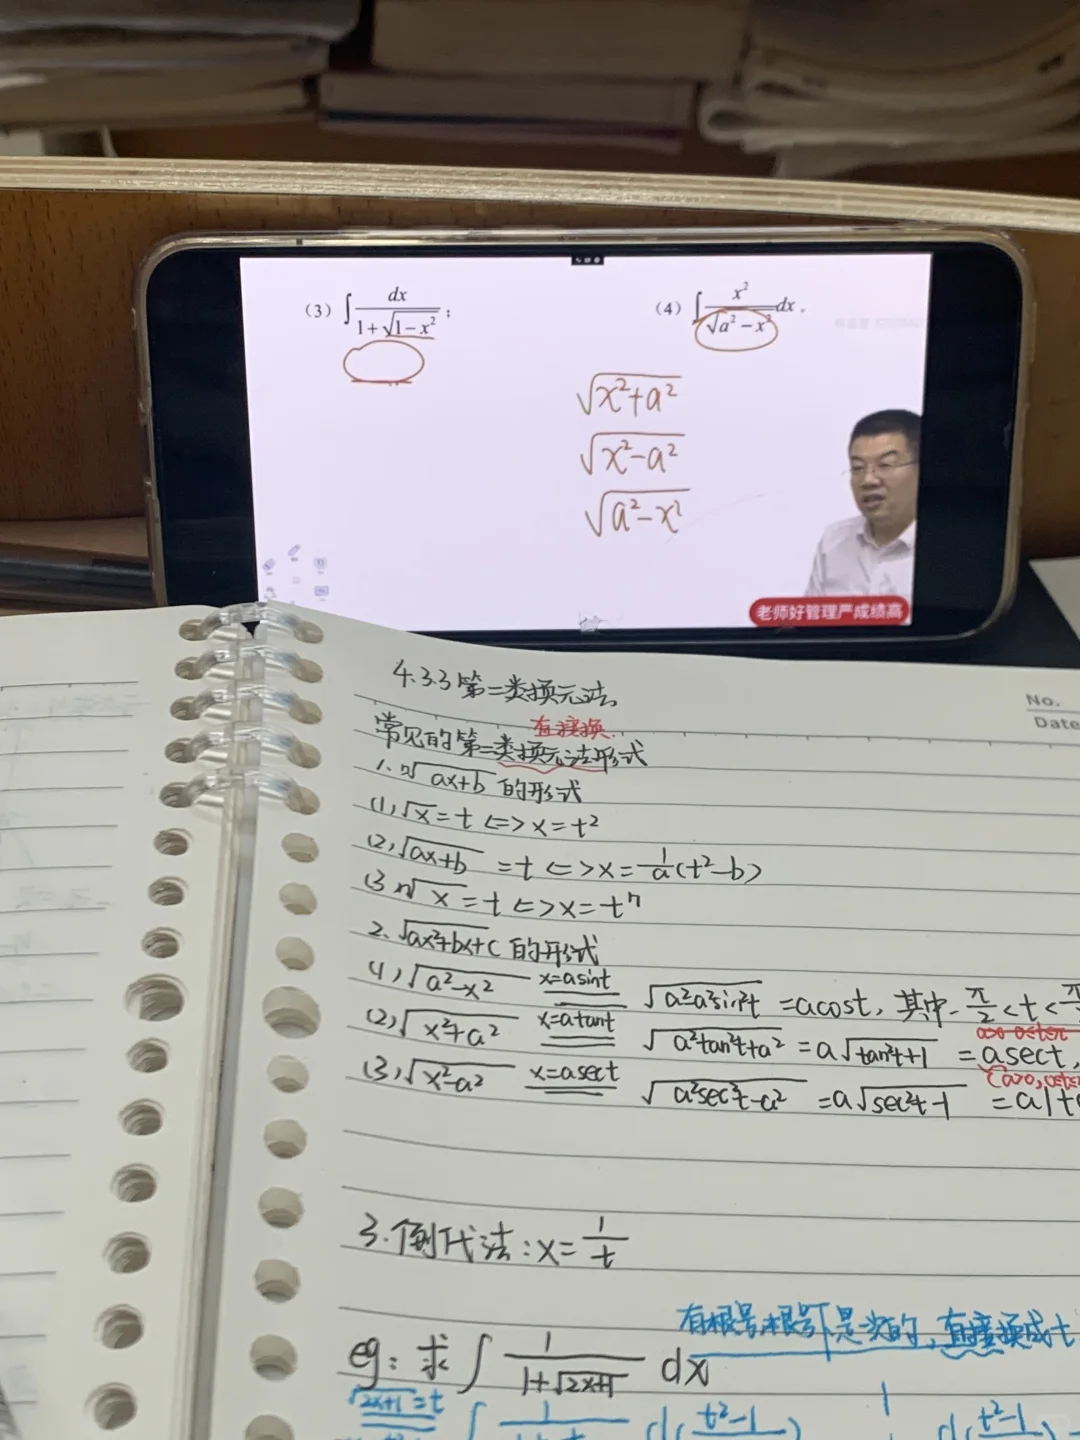 (3) ∫ dx / (1+√(1−x²)) ;
(4) ∫ x² / √(a²−x²) dx .
√(x²+a²)
√(x²−a²)
√(a²−x²)
老师好管理严成绩高
No.
Date
4.3.3 第二类换元法
有 直接换
常见的第二类换元法形式
1. ⁿ√(ax+b) 的形式
(1) √x = t <=> x = t²
(2) √(ax+b) = t <=> x = 1/a (t²−b)
(3) ⁿ√x = t <=> x = tⁿ
2. √(ax²+bx+c) 的形式
(1) √(a²−x²) x=asint √(a²a²sin²t) = acost, 其中 −π/2 < t < π
(2) √(x²+a²) x=atant √(a²tan²t+a²) = a√(tan²t+1) = asect,
(3) √(x²−a²) x=asect √(a²sec²t−a²) = a√(sec²t−1) = a|t
3. 倒代法: x = 1/t
有根号,根号下是一次的,直接换成t
eg: 求 ∫ 1/(1+√(2x+1)) dx
√(2x+1) = t
t²−1
t²−1